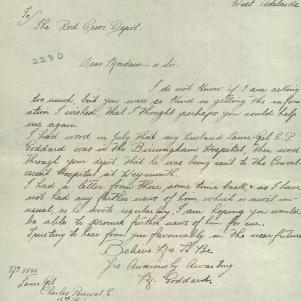 West Adelaide
To
The Red Cross Depot.
2230
Dear Madam or Sir.
I do not know if I am asking
too much, but you were so kind in getting the infor
ation I wished, that I thought perhaps you could help
me again
I had word in July that my husband Lance Cpl C. P.
Goddard was in the Birmingham Hospital, then word
through your depot, that he was being sent to the Conval
escent Hospital at Weymouth.
I had a letter from there some time back, & as I have
not had any further news of him which is most un
usual, as he wrote regularly, I am hoping you would
be able to procure further news of him for me.
Trusting to hear from you favorably in the near future
Believe Me To Be.
Yrs Anxiously Awaiting
Goddard.
No
Lance Cpl.
Charles Percival G.